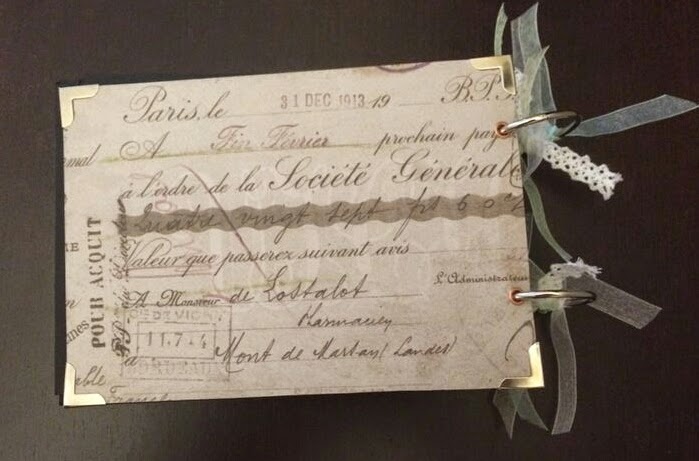 Paris, le 31 DEC 1913 19 B.P.
mal A Fin Février prochain pay
à l'ordre de la Société Générale
Quatre vingt sept frs 60
Valeur que passerez suivant avis
L'Administrateur
A Monsieur de Lostalot
Pharmacien
à Mont de Marsan (Landes)
POUR ACQUIT
DE VICHY
11.7.14
BORDEAUX
able